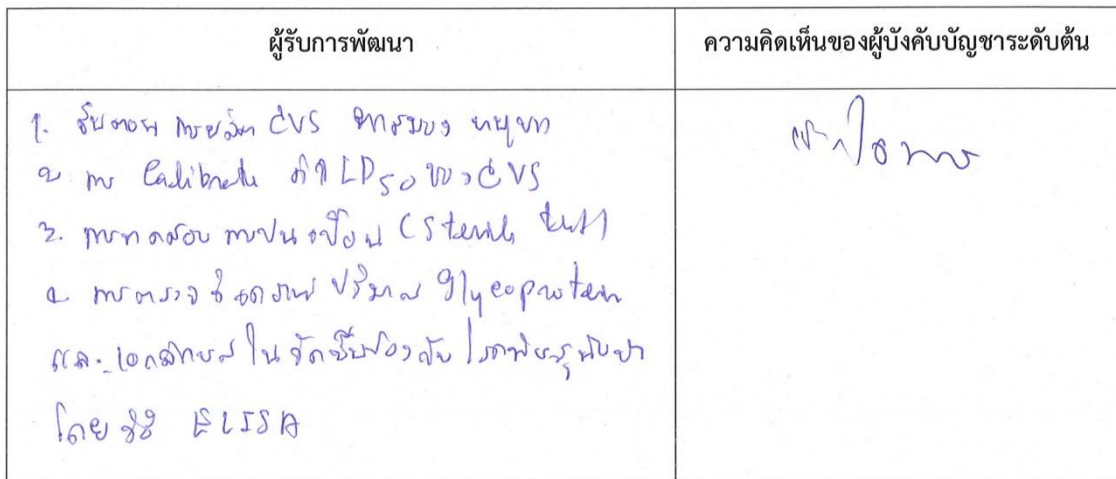 ผู้รับการพัฒนา
ความคิดเห็นของผู้บังคับบัญชาระดับต้น
1. ขั้นตอน การผลิต CVS จากสมอง หนูขาว
2. การ Calibrate ค่า LD50 ของ CVS
3. การทดสอบ การปนเปื้อน (Sterility test)
4. การตรวจ ปริมาณ Glycoprotein
และ ใน วัคซีนป้องกัน โรคพิษสุนัขบ้า
โดย วิธี ELISA